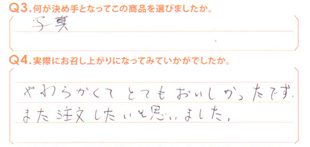 Q3.何が決め手となってこの商品を選びましたか。
写真
Q4.実際にお召し上がりになってみていかがでしたか。
やわらかくて とても おいしかったです
また注文したいと思いました。